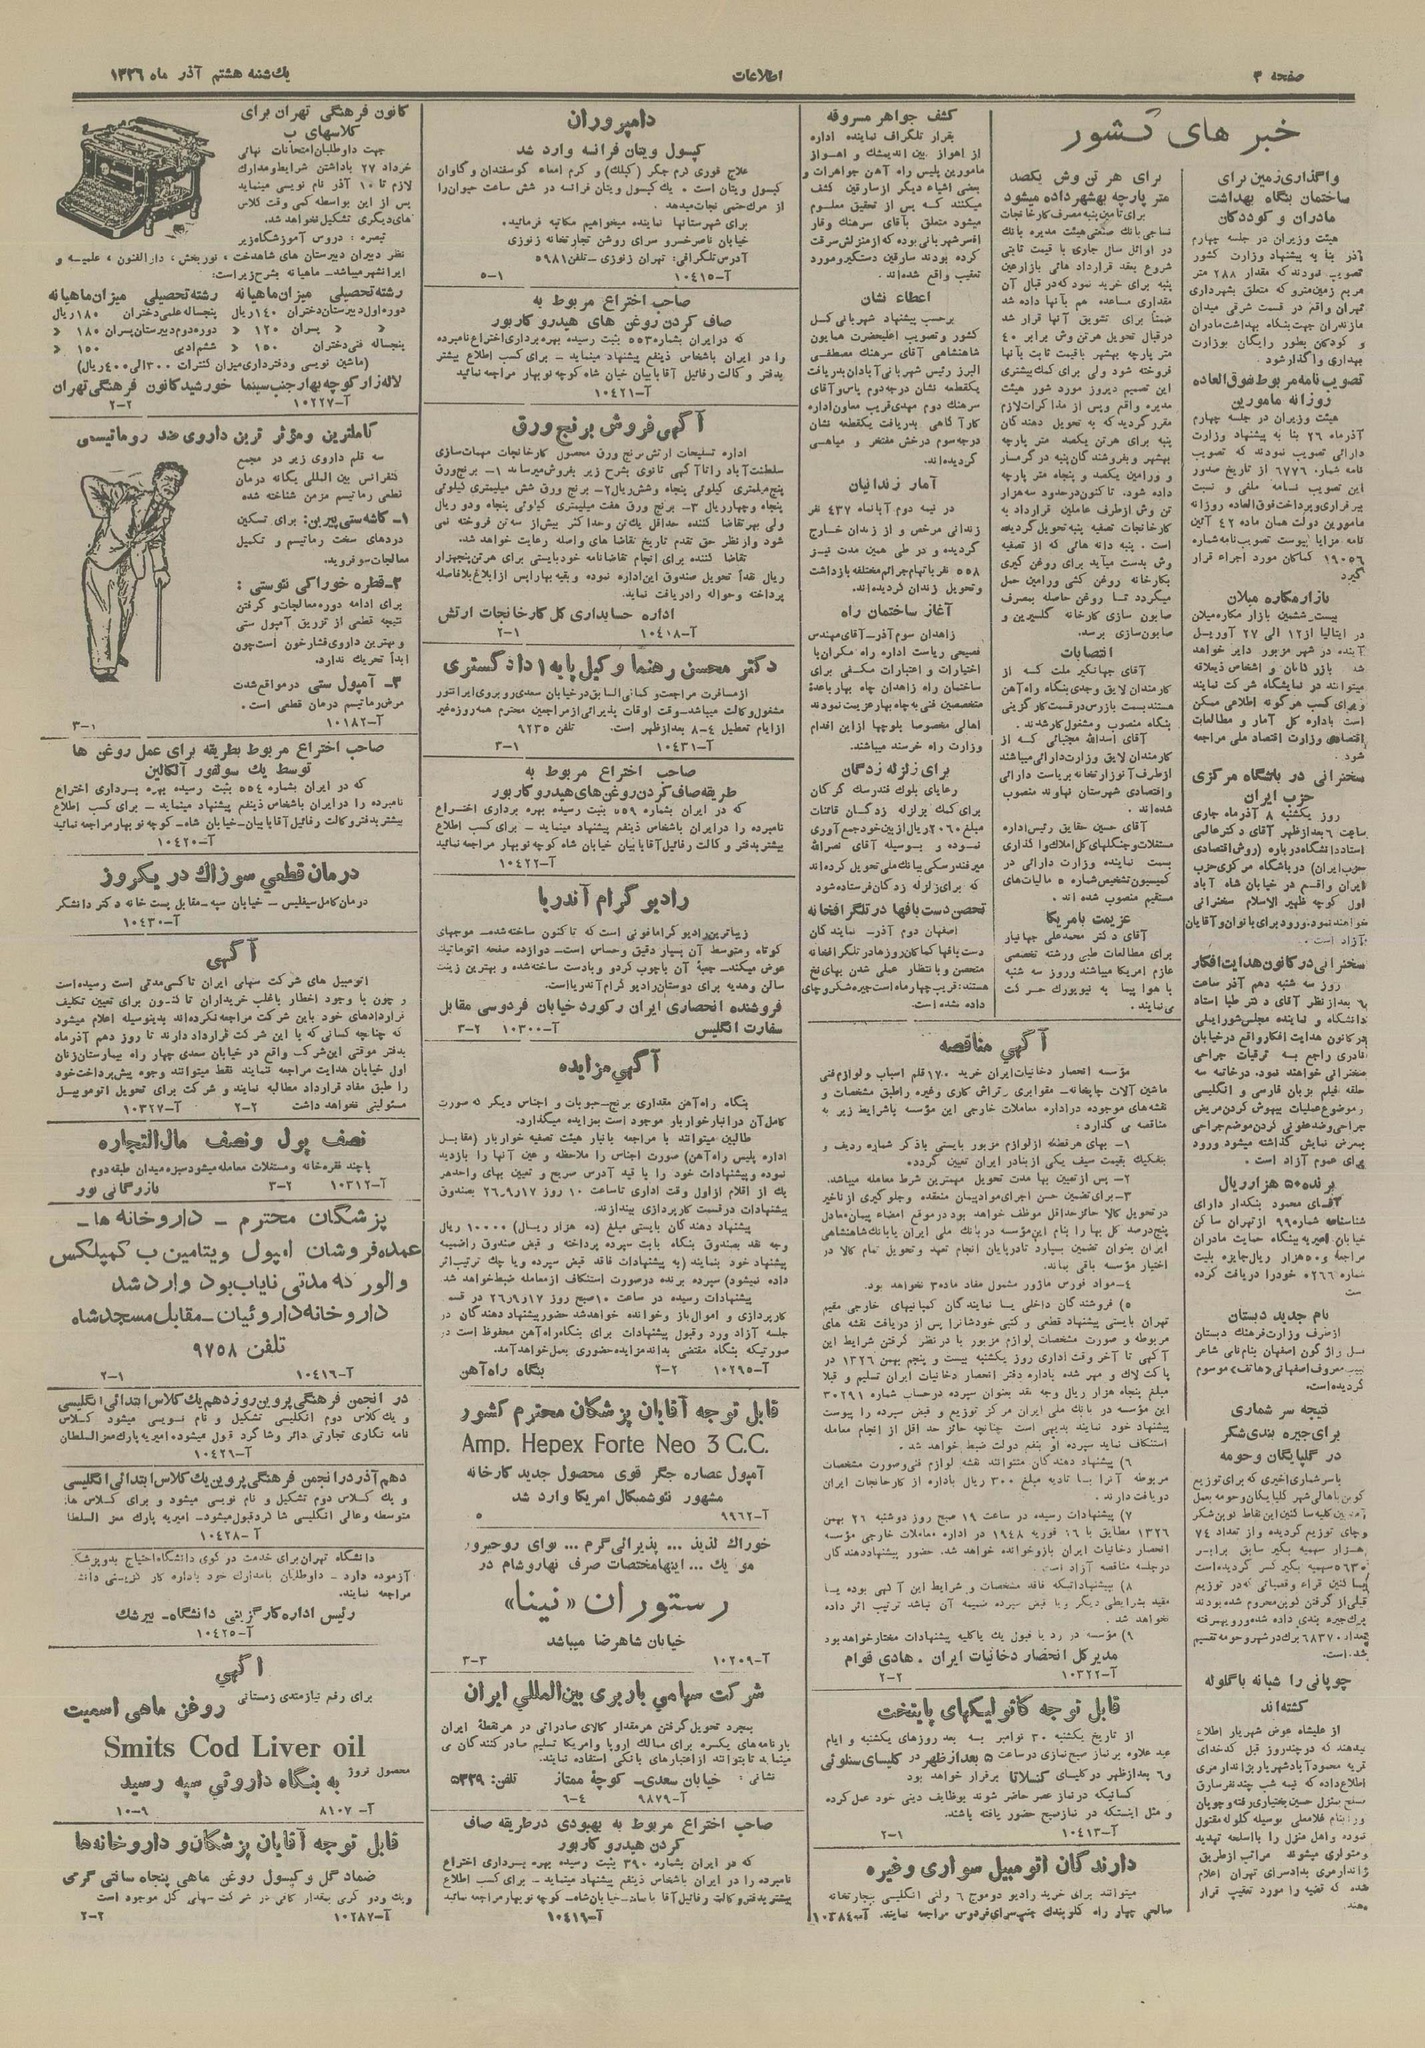 صفحه ۳
اطلاعات
یك شنبه هشتم آذر ماه ۱۳۲۶
خبر های کشور
واگذاری زمین برای
ساختمان بنگاه بهداشت
مادران و کودکان
هیئت وزیران در جلسه چهارم
آذر بنا به پیشنهاد وزارت کشور
تصویب نمودند که مقدار ۲۸۸ متر
مربع زمین مترو که متعلق بشهرداری
تهران واقع در قسمت شرقی میدان
مازندران جهت بنگاه بهداشت مادران
و کودکان بطور رایگان بوزارت
بهداری واگذار شود.
تصویب نامه مربوط بفوق العاده
روزانه مامورین
هیئت وزیران در جلسه چهارم
آذرماه ۲۶ بنا به پیشنهاد وزارت
دارائی تصویب نمودند که تصویب
نامه شماره ۶۷۷۶ از تاریخ صدور
این تصویب نامه ملغی و نسبت
ببرقراری و پرداخت فوق العاده روزانه
مامورین دولت همان ماده ۴۲ آئین
نامه مزایا پیوست تصویب نامه شماره
۱۹۰۵۶ کماکان مورد اجراء قرار
گیرد
بازار مکاره میلان
بیست و ششمین بازار مکاره میلان
در ایتالیا از ۱۲ الی ۲۷ آوریل
آینده در شهر مزبور دایر خواهد
شد بازرگانان و اشخاص ذیعلاقه
میتوانند در نمایشگاه شرکت نمایند
و برای کسب هر گونه اطلاعی ممکن
است باداره کل آمار و مطالعات
اقتصادی وزارت اقتصاد ملی مراجعه
شود.
سخنرانی در باشگاه مرکزی
حزب ایران
روز یکشنبه ۸ آذرماه جاری
ساعت ۶ بعداز ظهر آقای دکتر عالمی
استاد دانشگاه درباره (روش اقتصادی
حزب ایران) در باشگاه مرکزی حزب
ایران واقع در خیابان شاه آباد
اول کوچه ظهیر الاسلام سخنرانی
خواهند نمود، ورود برای بانوان و آقایان
آزاد است.
سخنرانی در کانون هدایت افکار
روز سه شنبه دهم آذر ساعت
دانشگاه و نماینده مجلس شورایملی
در کانون هدایت افکار واقع در خیابان
قادری راجع به ترقیات جراحی
سخنرانی خواهند نمود. در خاتمه سه
حلقه فیلم بزبان فارسی و انگلیسی
در موضوع عملیات بیهوش کردن مریض
جراحی و ضد عفونی کردن موضع جراحی
بمعرض نمایش گذاشته میشود ورود
برای عموم آزاد است.
برنده ۵۰ هزار ریال
آقای محمود بنکدار دارای
شناسنامه شماره ۹۹ از تهران ساکن
خیابان امیریه بنگاه حمایت مادران
مراجعه و ۵۰ هزار ریال جایزه بلیت
شماره ۰۲۶۶ خود را دریافت کرده
است
نام جدید دبستان
از طرف وزارت فرهنگ دبستان
معروف اصفهانی «هاتف» موسوم
گردیده است.
نتیجه سر شماری
برای جیره بندی شکر
در گلپایگان و حومه
کشته اند
برای هر تن وش یکصد
متر پارچه بهشهر داده میشود
برای تامین پنبه مصرف کارخانجات
نساجی بانک صنعتی هیئت مدیره بانک
در اوائل سال جاری با قیمت ثابتی
شروع بعقد قرارداد هائی بازارعین
پنبه برای خرید نمود که در قبال آن
مقداری مساعده هم بآنها داده شد
ضمناً برای تشویق آنها قرار شد
در قبال تحویل هر تن وش برابر ۴۰
متر پارچه بهشهر با قیمت ثابت بآنها
فروخته شود ولی برای کمک بیشتری
این تصمیم دیروز مورد شور هیئت
مدیره واقع و پس از مذاکرات لازم
مقرر گردید که به تحویل دهندگان
پنبه برای هر تن یکصد متر پارچه
بهشهر و بفروشندگان پنبه در گرمسار
و ورامین یکصد و پنجاه متر پارچه
داده شود، تاکنون در حدود سه هزار
تن وش از طرف عاملین قرارداد به
کارخانجات تصفیه پنبه تحویل گردیده
است. پنبه دانه هائی که از تصفیه
وش بدست میآید برای روغن گیری
بکارخانه روغن کشی ورامین حمل
میگردد تا روغن حاصله بمصرف
صابون سازی کارخانه گلیسرین و
صابون سازی برسد.
انتصابات
آقای جهانگیر ملت که از
کارمندان لایق و جدی بنگاه راه آهن
هستند بسمت بازرس در قسمت کارگزینی
بنگاه منصوب و مشغول کار شدند.
آقای اسدالله مجتبائی که از
کارمندان لایق وزارت دارائی میباشند
از طرف آن وزارتخانه بریاست دارائی
و اقتصادی شهرستان نهاوند منصوب
شده اند.
آقای حسین حقایق رئیس اداره
مستغلات و جنگلهای کل املاک واگذاری
بسمت نماینده وزارت دارائی در
کمیسیون تشخیص شماره ۵ مالیات های
مستقیم منصوب شده اند.
عزیمت بامریکا
آقای دکتر محمد علی جهانیار
برای مطالعات طبی ورشته تخصصی
عازم امریکا میباشند و روز سه شنبه
با هوا پیما به نیویورک حرکت
می نمایند.
کشف جواهر مسروقه
بقرار تلگراف نماینده اداره
از اهواز بین اندیمشک و اهواز
مامورین پلیس راه آهن جواهرات و
بعضی اشیاء دیگر از سارقین کشف
میکنند که پس از تحقیق معلوم
میشود متعلق بآقای سرهنک وقار
افسر شهربانی بوده که از منزلش سرقت
کرده بودند سارقین دستگیر و مورد
تعقیب واقع شده اند.
اعطاء نشان
برحسب پیشنهاد شهربانی کل
کشور و تصویب اعلیحضرت همایون
شاهنشاهی آقای سرهنگ مصطفی
البرز رئیس شهربانی آبادان بدریافت
یکقطعه نشان درجه دوم پاس و آقای
سرهنک دوم مهدی قریب معاون اداره
کارآگاهی بدریافت یکقطعه نشان
درجه سوم درخش مفتخر و مباهی
گردیده اند.
آمار زندانیان
در نیمه دوم آبانماه ۴۳۷ نفر
زندانی مرخص و از زندان خارج
گردیده و در طی همین مدت نیز
۵۵۸ نفر باتهام جرائم مختلفه بازداشت
و تحویل زندان گردیده اند.
آغاز ساختمان راه
زاهدان سوم آذر- آقای مهندس
فصیحی ریاست اداره راه مکران با
اختیارات و اعتبارات مکفی برای
ساختمان راه زاهدان چاه بهار باعدهٔ
متخصصین فنی به چاه بهار عزیمت نمودند
اهالی مخصوصا بلوچها از این اقدام
وزارت راه خرسند میباشند.
برای زلزله زدگان
رعایای بلوک فندرسک گرگان
برای کمک بزلزله زدگان قائنات
مبلغ ۲۰۶۰ ریال از بین خود جمع آوری
نموده و بوسیله آقای نصرالله
میرفندرسکی ببانک ملی تحویل کرده اند
که برای زلزله زدگان فرستاده شود
تحصن دست بافها در تلگرافخانه
اصفهان دوم آذر- نمایندگان
دست بافها کماکان روزها در تلگرافخانه
متحصن و با انتظار عملی شدن بهای نخ
هستند، قریب چهار ماه است جیره شکر و چای
داده نشده است.
آگهی مناقصه
مؤسسه انحصار دخانیات ایران خرید ۱۷۰ قلم اسباب و لوازم فنی
ماشین آلات چاپخانه- مقوابری- تراش کاری و غیره را طبق مشخصات و
نقشه های موجوده در اداره معاملات خارجی این مؤسسه باشرایط زیر به
مناقصه می گذارد:
۱- بهای هر قطعه از لوازم مزبور بایستی با ذکر شماره ردیف و
بتفکیک بقیمت سیف یکی از بنادر ایران تعیین گردد.
۲- پس از تعیین بها مدت تحویل مهمترین شرط معامله میباشد.
۳- برای تضمین حسن اجرای مواد پیمان منعقده و جلوگیری از تاخیر
در تحویل کالا حائز حداقل موظف خواهد بود در موقع امضاء پیمان معادل
پنج درصد کل بها را بنام این مؤسسه در بانک ملی ایران یا بانک شاهنشاهی
ایران بعنوان تضمین بسپارد تا در پایان انجام تعهد و تحویل تمام کالا در
اختیار مؤسسه باقی بماند.
۴- مواد فورس ماژور مشمول مفاد ماده ۳ نخواهد بود.
۵) فروشندگان داخلی یا نمایندگان کمپانیهای خارجی مقیم
تهران بایستی پیشنهاد قطعی و کتبی خودشانرا پس از دریافت نقشه های
مربوطه و صورت مشخصات لوازم مزبور با در نظر گرفتن شرایط این
آگهی تا آخر وقت اداری روز یکشنبه بیست و پنجم بهمن ۱۳۲۶ در
پاکت لاک و مهر شده باداره دفتر انحصار دخانیات ایران تسلیم و قبلا
مبلغ پنجاه هزار ریال وجه نقد بعنوان سپرده در حساب شماره ۳۰۲۹۱
این مؤسسه در بانک ملی ایران مرکز تودیع و قبض سپرده را پیوست
پیشنهاد خود نمایند بدیهی است چنانچه حائز حداقل از انجام معامله
استنکاف نماید سپرده او بنفع دولت ضبط خواهد شد.
۶) پیشنهاد دهندگان میتوانند نقشه لوازم فنی و صورت مشخصات
مربوطه آنرا با تادیه مبلغ ۳۰۰ ریال باداره از کارخانجات ایران
دریافت دارند.
۷) پیشنهادات رسیده در ساعت ۱۹ صبح روز دوشنبه ۲۶ بهمن
۱۳۲۶ مطابق با ۱۶ فوریه ۱۹۴۸ در اداره معاملات خارجی مؤسسه
انحصار دخانیات ایران باز و خوانده خواهد شد. حضور پیشنهاد دهندگان
در جلسه مناقصه آزاد است.
۸) پیشنهاداتیکه فاقد مشخصات و شرایط این آگهی بوده یا
مقید بشرایطی دیگر و یا قبض سپرده ضمیمه آن نباشد ترتیب اثر داده
نخواهد شد.
۹) مؤسسه در رد یا قبول یک یا کلیه پیشنهادات مختار خواهد بود
مدیر کل انحصار دخانیات ایران. هادی قوام
آ-۱۰۳۲۲ ۲-۲
قابل توجه کاتولیکهای پایتخت
از تاریخ یکشنبه ۳۰ نوامبر به بعد روزهای یکشنبه و ایام
عید علاوه بر نماز صبح نمازی در ساعت ۵ بعداز ظهر در کلیسای سنلوئی
و ۶ بعداز ظهر در کلیسای کنسلاتا برقرار خواهد بود
کسانیکه در نماز عصر حاضر شوند بوظایف دینی خود عمل کرده
و مثل اینستکه در نماز صبح حضور یافته باشند.
آ-۱۰۴۱۳ ۲-۱
دارندگان اتومبیل سواری و غیره
میتوانند برای خرید رادیو دو موج ۶ ولتی انگلیسی بتجارتخانه
صالحی چهار راه کلوبندک جنب سرای فردوس مراجعه نمایند. آ-۱۰۳۸۴
دامپروران
کپسول ویتان فرانسه وارد شد
علاج فوری کرم جگر (کپلک) و کرم امعاء گوسفندان و گاوان
کپسول ویتان است. یک کپسول ویتان فرانسه در شش ساعت حیوان را
از مرگ حتمی نجات میدهد.
برای شهرستانها نماینده میخواهیم مکاتبه فرمائید.
خیابان ناصرخسرو سرای روشن تجارتخانه زنوزی
آدرس تلگرافی: تهران زنوزی- تلفن ۵۹۸۱
آ-۱۰۴۱۵ ۵-۱
صاحب اختراع مربوط به
صاف کردن روغن های هیدرو کاربور
که در ایران بشماره ۵۵۳ ثبت رسیده بهره برداری اختراع نامبرده
را در ایران باشخاص ذینفع پیشنهاد مینماید- برای کسب اطلاع بیشتر
بدفتر وکالت رفائیل آقابابیان خیابان شاه کوچه نوبهار مراجعه نمائید
آ-۱۰۴۲۱
آگهی فروش برنج ورق
اداره تسلیحات ارتش برنج ورق محصول کارخانجات مهمات سازی
سلطنت آباد را تا آگهی ثانوی بشرح زیر بفروش میرساند ۱- برنج ورق
پنج میلمتری کیلوئی پنجاه و شش ریال ۲- برنج ورق شش میلیمتری کیلوئی
پنجاه و چهار ریال ۳- برنج ورق هفت میلیمتری کیلوئی پنجاه و دو ریال
ولی بهر تقاضا کننده حداقل یک تن و حداکثر بیش از سه تن فروخته نمی
شود و از نظر حق تقدم تاریخ تقاضا های واصله رعایت خواهد شد.
تقاضا کننده برای انجام تقاضانامه خود بایستی برای هر تن پنجهزار
ریال نقداً تحویل صندوق این اداره نموده و بقیه بها را پس از ابلاغ بلافاصله
پرداخته و حواله را دریافت نماید.
اداره حسابداری کل کارخانجات ارتش
آ-۱۰۴۱۸ ۲-۱
دکتر محسن رهنما وکیل پایه ۱ دادگستری
از مسافرت مراجعت و کمافی السابق در خیابان سعدی روبروی ایرانتور
مشغول وکالت میباشد- وقت اوقات پذیرائی از مراجعین محترم همه روزه غیر
از ایام تعطیل ۴-۸ بعداز ظهر است. تلفن ۹۲۳۵
آ-۱۰۴۳۱ ۳-۱
صاحب اختراع مربوط به
طریقه صاف کردن روغن های هیدرو کاربور
که در ایران بشماره ۵۵۹ ثبت رسیده بهره برداری اختراع
نامبرده را در ایران باشخاص ذینفع پیشنهاد مینماید- برای کسب اطلاع
بیشتر بدفتر وکالت رفائیل آقابابیان خیابان شاه کوچه نوبهار مراجعه نمائید
آ-۱۰۴۲۲
رادیو گرام آندریا
زیباترین رادیو گرامافونی است که تاکنون ساخته شده- موجهای
کوتاه و متوسط آن بسیار دقیق و حساس است- دوازده صفحه اتوماتیک
عوض میکند- جعبهٔ آن با چوب گردو و با دست ساخته شده و بهترین زینت
سالن و هدیه برای دوستان رادیو گرام آندریا است.
فروشنده انحصاری ایران رکورد خیابان فردوسی مقابل
سفارت انگلیس آ-۱۰۳۰۰ ۳-۲
آگهی مزایده
بنگاه راه آهن مقداری برنج- حبوبات و اجناس دیگر که صورت
کامل آن در انبار خواربار موجود است بمزایده میگذارد.
طالبین میتوانند با مراجعه بانبار هیئت تصفیه خواربار (مقابل
اداره پلیس راه آهن) صورت اجناس را ملاحظه و عین آنها را بازدید
نموده و پیشنهادات خود را با قید آدرس صریح و تعیین بهای واحد هر
یک از اقلام از اول وقت اداری تا ساعت ۱۰ روز ۲۶/۹/۱۷ بصندوق
پیشنهادات در قسمت کارپردازی بیندازند.
پیشنهاد دهندگان بایستی مبلغ (ده هزار ریال) ۱۰۰۰۰ ریال
وجه نقد بصندوق بنگاه بابت سپرده پرداخته و قبض صندوق را ضمیمه
پیشنهاد خود بنمایند (به پیشنهادات فاقد قبض سپرده و یا چک ترتیب اثر
داده نمیشود) سپرده برنده در صورت استنکاف از معامله ضبط خواهد شد
پیشنهادات رسیده در ساعت ۱۰ صبح روز ۲۶/۹/۱۷ در قسمت
کارپردازی و اموال باز و خوانده خواهد شد حضور پیشنهاد دهندگان در
جلسه آزاد ورد و قبول پیشنهادات برای بنگاه راه آهن محفوظ است در
صورتیکه بنگاه مقتضی بداند مزایده حضوری بعمل خواهد آمد.
آ-۱۰۲۹۵ ۲-۲ بنگاه راه آهن
قابل توجه آقایان پزشکان محترم کشور
Amp. Hepex Forte Neo 3 C.C.
آمپول عصاره جگر قوی محصول جدید کارخانه
مشهور نئوشمیکال امریکا وارد شد
آ-۹۹۶۲ ۵
خوراک لذیذ ... پذیرائی گرم ... هوای روحپرور
موزیک ... اینها مختصات صرف نهار و شام در
رستوران «نینا»
خیابان شاهرضا میباشد
آ-۱۰۲۰۹ ۳-۳
شرکت سهامی باربری بین المللی ایران
بمجرد تحویل گرفتن هر مقدار کالای صادراتی در هر نقطهٔ ایران
بارنامه های یکسره برای ممالک اروپا و امریکا تسلیم صادر کنندگان می
نماید تا بتوانند از اعتبارهای بانکی استفاده نمایند.
نشانی: خیابان سعدی- کوچهٔ ممتاز تلفن: ۵۳۳۹
آ-۹۸۷۹ ۶-۴
صاحب اختراع مربوط به بهبودی در طریقه صاف
کردن هیدرو کاربور
که در ایران بشماره ۳۹۰ ثبت رسیده بهره برداری اختراع
نامبرده را در ایران باشخاص ذینفع پیشنهاد مینماید- برای کسب اطلاع
بیشتر بدفتر وکالت رفائیل آقابابیان- خیابان شاه- کوچه نوبهار مراجعه نمائید
آ-۱۰۴۱۹
کانون فرهنگی تهران برای
کلاسهای ب
جهت داوطلبان امتحانات نهائی
خرداد ۲۷ باداشتن شرایط و مدارک
لازم تا ۱۰ آذر نام نویسی مینماید
پس از این بواسطه کمی وقت کلاس
های دیگری تشکیل نخواهد شد.
تبصره: دروس آموزشگاه زیر
نظر دبیران دبیرستان های شاهدخت، نوربخش، دارالفنون، علمیه و
ایرانشهر میباشد- ماهیانه بشرح زیر است:
رشته تحصیلی میزان ماهیانه رشته تحصیلی میزان ماهیانه
دوره اول دبیرستان دختران ۱۴۰ ریال پنجساله علمی دختران ۱۸۰ ریال
« « پسران ۱۲۰ « دوره دوم دبیرستان پسران ۱۸۰ «
پنجساله فنی دختران ۱۵۰ « ششم ادبی ۱۵۰ «
(ماشین نویسی و دفترداری میزان کنترات ۳۰۰ الی ۴۰۰ ریال)
لاله زار کوچه بهار جنب سینما خورشید کانون فرهنگی تهران
آ-۱۰۲۲۷ ۲-۲
کاملترین و مؤثر ترین داروی ضد روماتیسمی
سه قلم داروی زیر در مجمع
کنفرانس بین المللی یگانه درمان
قطعی رماتیسم مزمن شناخته شده
۱- کاشه ستی پیرین: برای تسکین
دردهای سخت رماتیسم و تکمیل
معالجات سوفروید.
۲- قطره خوراکی نئوستی:
برای ادامه دوره معالجات و گرفتن
نتیجه قطعی از تزریق آمپول ستی
و بهترین داروی فشار خون است چون
ابداً تحریک ندارد.
۳- آمپول ستی در مواقع شدت
مرض رماتیسم درمان قطعی است.
آ-۱۰۱۸۲ ۳-۱
صاحب اختراع مربوط بطریقه برای عمل روغن ها
توسط یك سولفور آلکالین
که در ایران بشماره ۵۵۴ ثبت رسیده بهره برداری اختراع
نامبرده را در ایران باشخاص ذینفع پیشنهاد مینماید- برای کسب اطلاع
بیشتر بدفتر وکالت رفائیل آقابابیان- خیابان شاه- کوچه نوبهار مراجعه نمائید
آ-۱۰۴۲۰
درمان قطعی سوزاك در یکروز
درمان کامل سیفلیس- خیابان سپه- مقابل پست خانه دکتر دانشگر
آ-۱۰۴۳۰
آگهی
اتومبیل های شرکت سهامی ایران تاکسی مدتی است رسیده است
و چون با وجود اخطار باغلب خریداران تاکنون برای تعیین تکلیف
قراردادهای خود باین شرکت مراجعه نکرده اند بدینوسیله اعلام میشود
که چنانچه کسانی که با این شرکت قرارداد دارند تا روز دهم آذرماه
بدفتر موقتی این شرکت واقع در خیابان سعدی چهار راه بیمارستان زنان
اول خیابان هدایت مراجعه ننمایند فقط میتوانند وجوه پیش پرداخت خود
را طبق مفاد قرارداد مطالبه نمایند و شرکت برای تحویل اتومبیل
مسئولیتی نخواهد داشت ۲-۲ آ-۱۰۳۲۷
نصف پول ونصف مال التجاره
با چند فقره خانه و مستغلات معامله میشود سبزه میدان طبقه دوم
آ-۱۰۳۱۲ ۳-۲ بازرگانی نور
پزشکان محترم - داروخانه ها-
عمده فروشان امپول ویتامین ب کمپلکس
والور که مدتی نایاب بود وارد شد
داروخانه داروئیان- مقابل مسجد شاه
تلفن ۹۷۵۸
آ-۱۰۴۱۶ ۲-۱
در انجمن فرهنگی پروین روز دهم یك کلاس ابتدائی انگلیسی
و یک کلاس دوم انگلیسی تشکیل و نام نویسی میشود کلاس
نامه نگاری تجارتی دائر و شاگرد قبول میشود، امیریه پارک معز السلطان
آ-۱۰۴۲۶
دهم آذر در انجمن فرهنگی پروین یك کلاس ابتدائی انگلیسی
و یک کلاس دوم تشکیل و نام نویسی میشود و برای کلاس های
متوسطه و عالی انگلیسی شاگرد قبول میشود- امیریه پارک معز السلطا
آ-۱۰۴۲۸
دانشگاه تهران برای خدمت در کوی دانشگاه احتیاج بدو پزشک
آزموده دارد- داوطلبان بامدارک خود باداره کار گزینی دانشگاه
مراجعه نمایند.
رئیس اداره کارگزینی دانشگاه- بیرشک
آ-۱۰۴۲۵
آگهی
برای رفع نیازمندی زمستانی روغن ماهی اسمیت
Smits Cod Liver oil
محصول نروژ به بنگاه داروئی سپه رسید
آ-۸۱۰۷ ۱۰-۹
قابل توجه آقایان پزشکان و داروخانه ها
ضماد گل و کپسول روغن ماهی پنجاه سانتی گرمی
ویک و دو گرمی بمقدار کافی در شرکت سهامی گل موجود است
آ-۱۰۲۸۷ ۲-۲